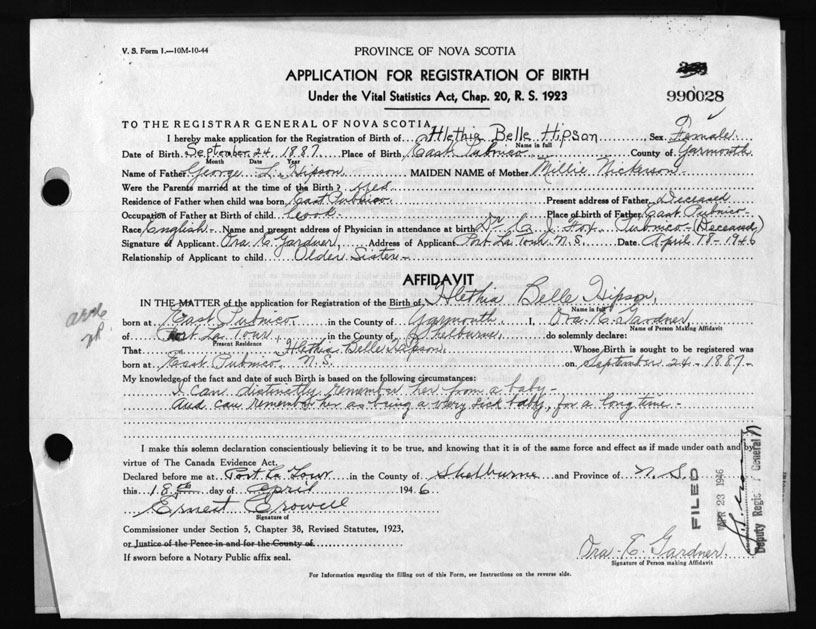 V. S. Form 1.—10M-10-44
PROVINCE OF NOVA SCOTIA
APPLICATION FOR REGISTRATION OF BIRTH
Under the Vital Statistics Act, Chap. 20, R. S. 1923
990028
TO THE REGISTRAR GENERAL OF NOVA SCOTIA
I hereby make application for the Registration of Birth of Hlethia Belle Hipson, Sex Female
Name in full
Date of Birth September 24, 1887 Place of Birth East Pubnico County of Yarmouth
Month Date Year
Name of Father George L. Hipson MAIDEN NAME of Mother Millie Nickerson
Were the Parents married at the time of the Birth? yes
Residence of Father when child was born East Pubnico Present address of Father Deceased
Occupation of Father at Birth of child Cook Place of birth of Father East Pubnico
Race English Name and present address of Physician in attendance at birth Dr. J. Fox Pubnico (Deceased)
Signature of Applicant Ora E. Gardner, Address of Applicant Port La Tour N.S. Date April 18-1946
Relationship of Applicant to child Older Sister
AFFIDAVIT
IN THE MATTER of the application for Registration of the Birth of Hlethia Belle Hipson,
Name in full
born at East Pubnico in the County of Yarmouth I, Ora E. Gardner,
Name of Person Making Affidavit
of Port La Tour, in the County of Shelburne, do solemnly declare:
Present Residence
That Hlethia Belle Hipson, Whose Birth is sought to be registered was
born at East Pubnico N.S. on September 24-1887-
My knowledge of the fact and date of such Birth is based on the following circumstances:
I can distinctly remember her from a baby-
And can remember her as being a very sick baby, for a long time-
I make this solemn declaration conscientiously believing it to be true, and knowing that it is of the same force and effect as if made under oath and by
virtue of The Canada Evidence Act.
Declared before me at Port La Tour in the County of Shelburne and Province of N.S.
this 18th day of April 1946
Ernest Crowell
Signature of
Commissioner under Section 5, Chapter 38, Revised Statutes, 1923,
or Justice of the Peace in and for the County of
If sworn before a Notary Public affix seal.
Ora E. Gardner
Signature of Person making Affidavit
For Information regarding the filling out of this Form, see Instructions on the reverse side.
FILED
APR 23 1946
Deputy Registrar General